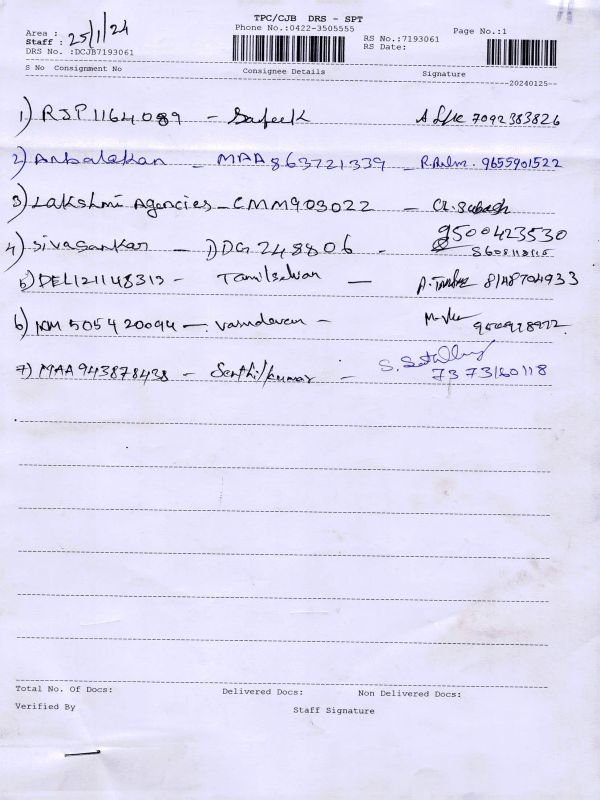 TPC/CJB DRS - SPT
Phone No.:0422-3505555
Area :
Staff : 25/1/24
DRS No. :DCJB7193061
RS No.:7193061
RS Date:
Page No.:1
S No Consignment No Consignee Details Signature
20240125
1) RJP1164089 - Safeek 7092383826
2) Anbalakan - MAA863721339 - 9655901522
3) Lakshmi Agencies - CMM903022 -
9500423530
4) Sivasankar - DG248806 -
5) DEL121148313 - Tamilselvan - 8148704933
6) 505420094 - Vasudevan -
7) MAA943878438 - Senthilkumar -
7373160118
Total No. Of Docs: Delivered Docs: Non Delivered Docs:
Verified By Staff Signature